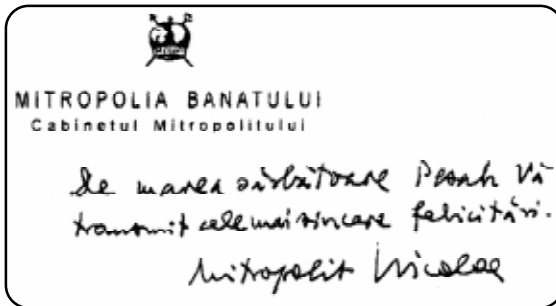 MITROPOLIA BANATULUI
Cabinetul Mitropolitului
De marea sărbătoare Pesah Vă
transmit cele mai sincere felicitări.
Mitropolit Nicolae